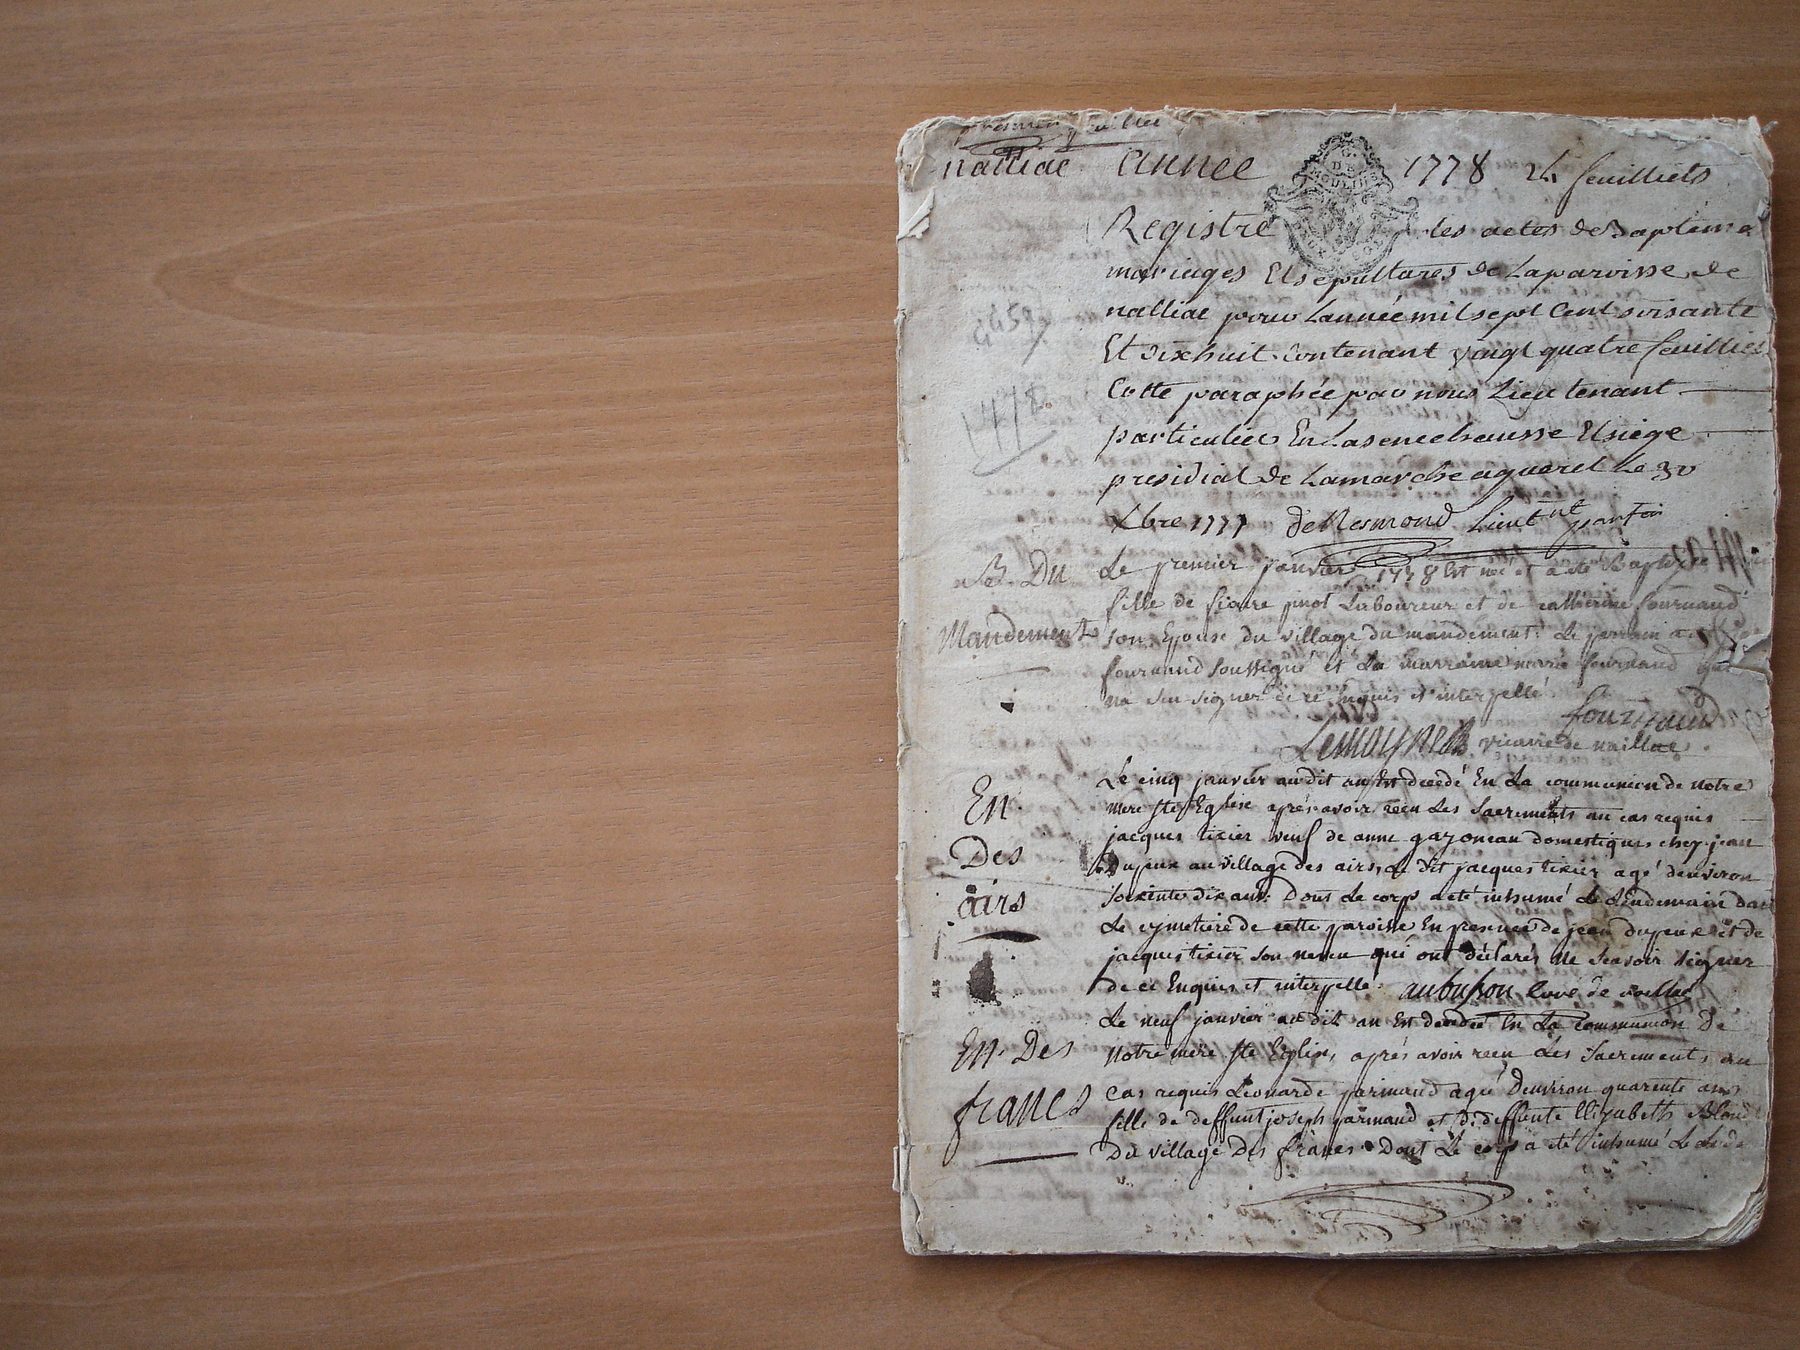 premier feuillet
nalliac année 1778 24 feuilliets
Registre les actes de Baptême
mariages Et sepultures de Laparoisse de
nalliac pour Lannée mil sept Cent soisante
Et dixhuit Contenant vingt quatre feuilliets
Cotté paraphée par nous Lieutenant
particulier En Lasenechausse Et siege
presidial de Lamarche agueret Le 30
Xbre 1777 de Nesmond Lieut.nt par.er
B. Du
Mandement
Le premier janvier 1778 Est né et a été Baptisé
fille de pinot Laboureur et de catherine fournaud
son Epouse du village du mandement. Le parrain
fournaud soussigné et La marraine marie fournaud qui
na seu signer de ce Enquis et interpellé.
fournaud
vicaire de naillac.
En
Des
airs
Le cinq janvier audit an Est décédé En La communion de notre
mere ste Eglise aprés avoir reçu Les Sacrements au cas requis
jacques tixier veuf de anne domestique chez jean
dupeux au village des airs, Le dit jacques tixier agé denviron
soixente dix ans. Dont Le corp a été inhumé Le Lendemain dans
Le cymetiere de cette paroisse En presence de jean dupeux et de
jacques tixier son neveu qui ont déclarés ne scavoir signer
de ce Enquis et interpellé. aubusson curé de naillac
En. Des
francs
Le neuf janvier audit an Est décédée En La communion De
notre mere ste Eglise, aprés avoir reçu Les Sacrements au
cas requis Léonarde parinaud agée Denviron quarente ans
fille de deffunt joseph parinaud et de deffunte Elizabeth
Du village Des francs. Dont Le corp a été inhumé Le